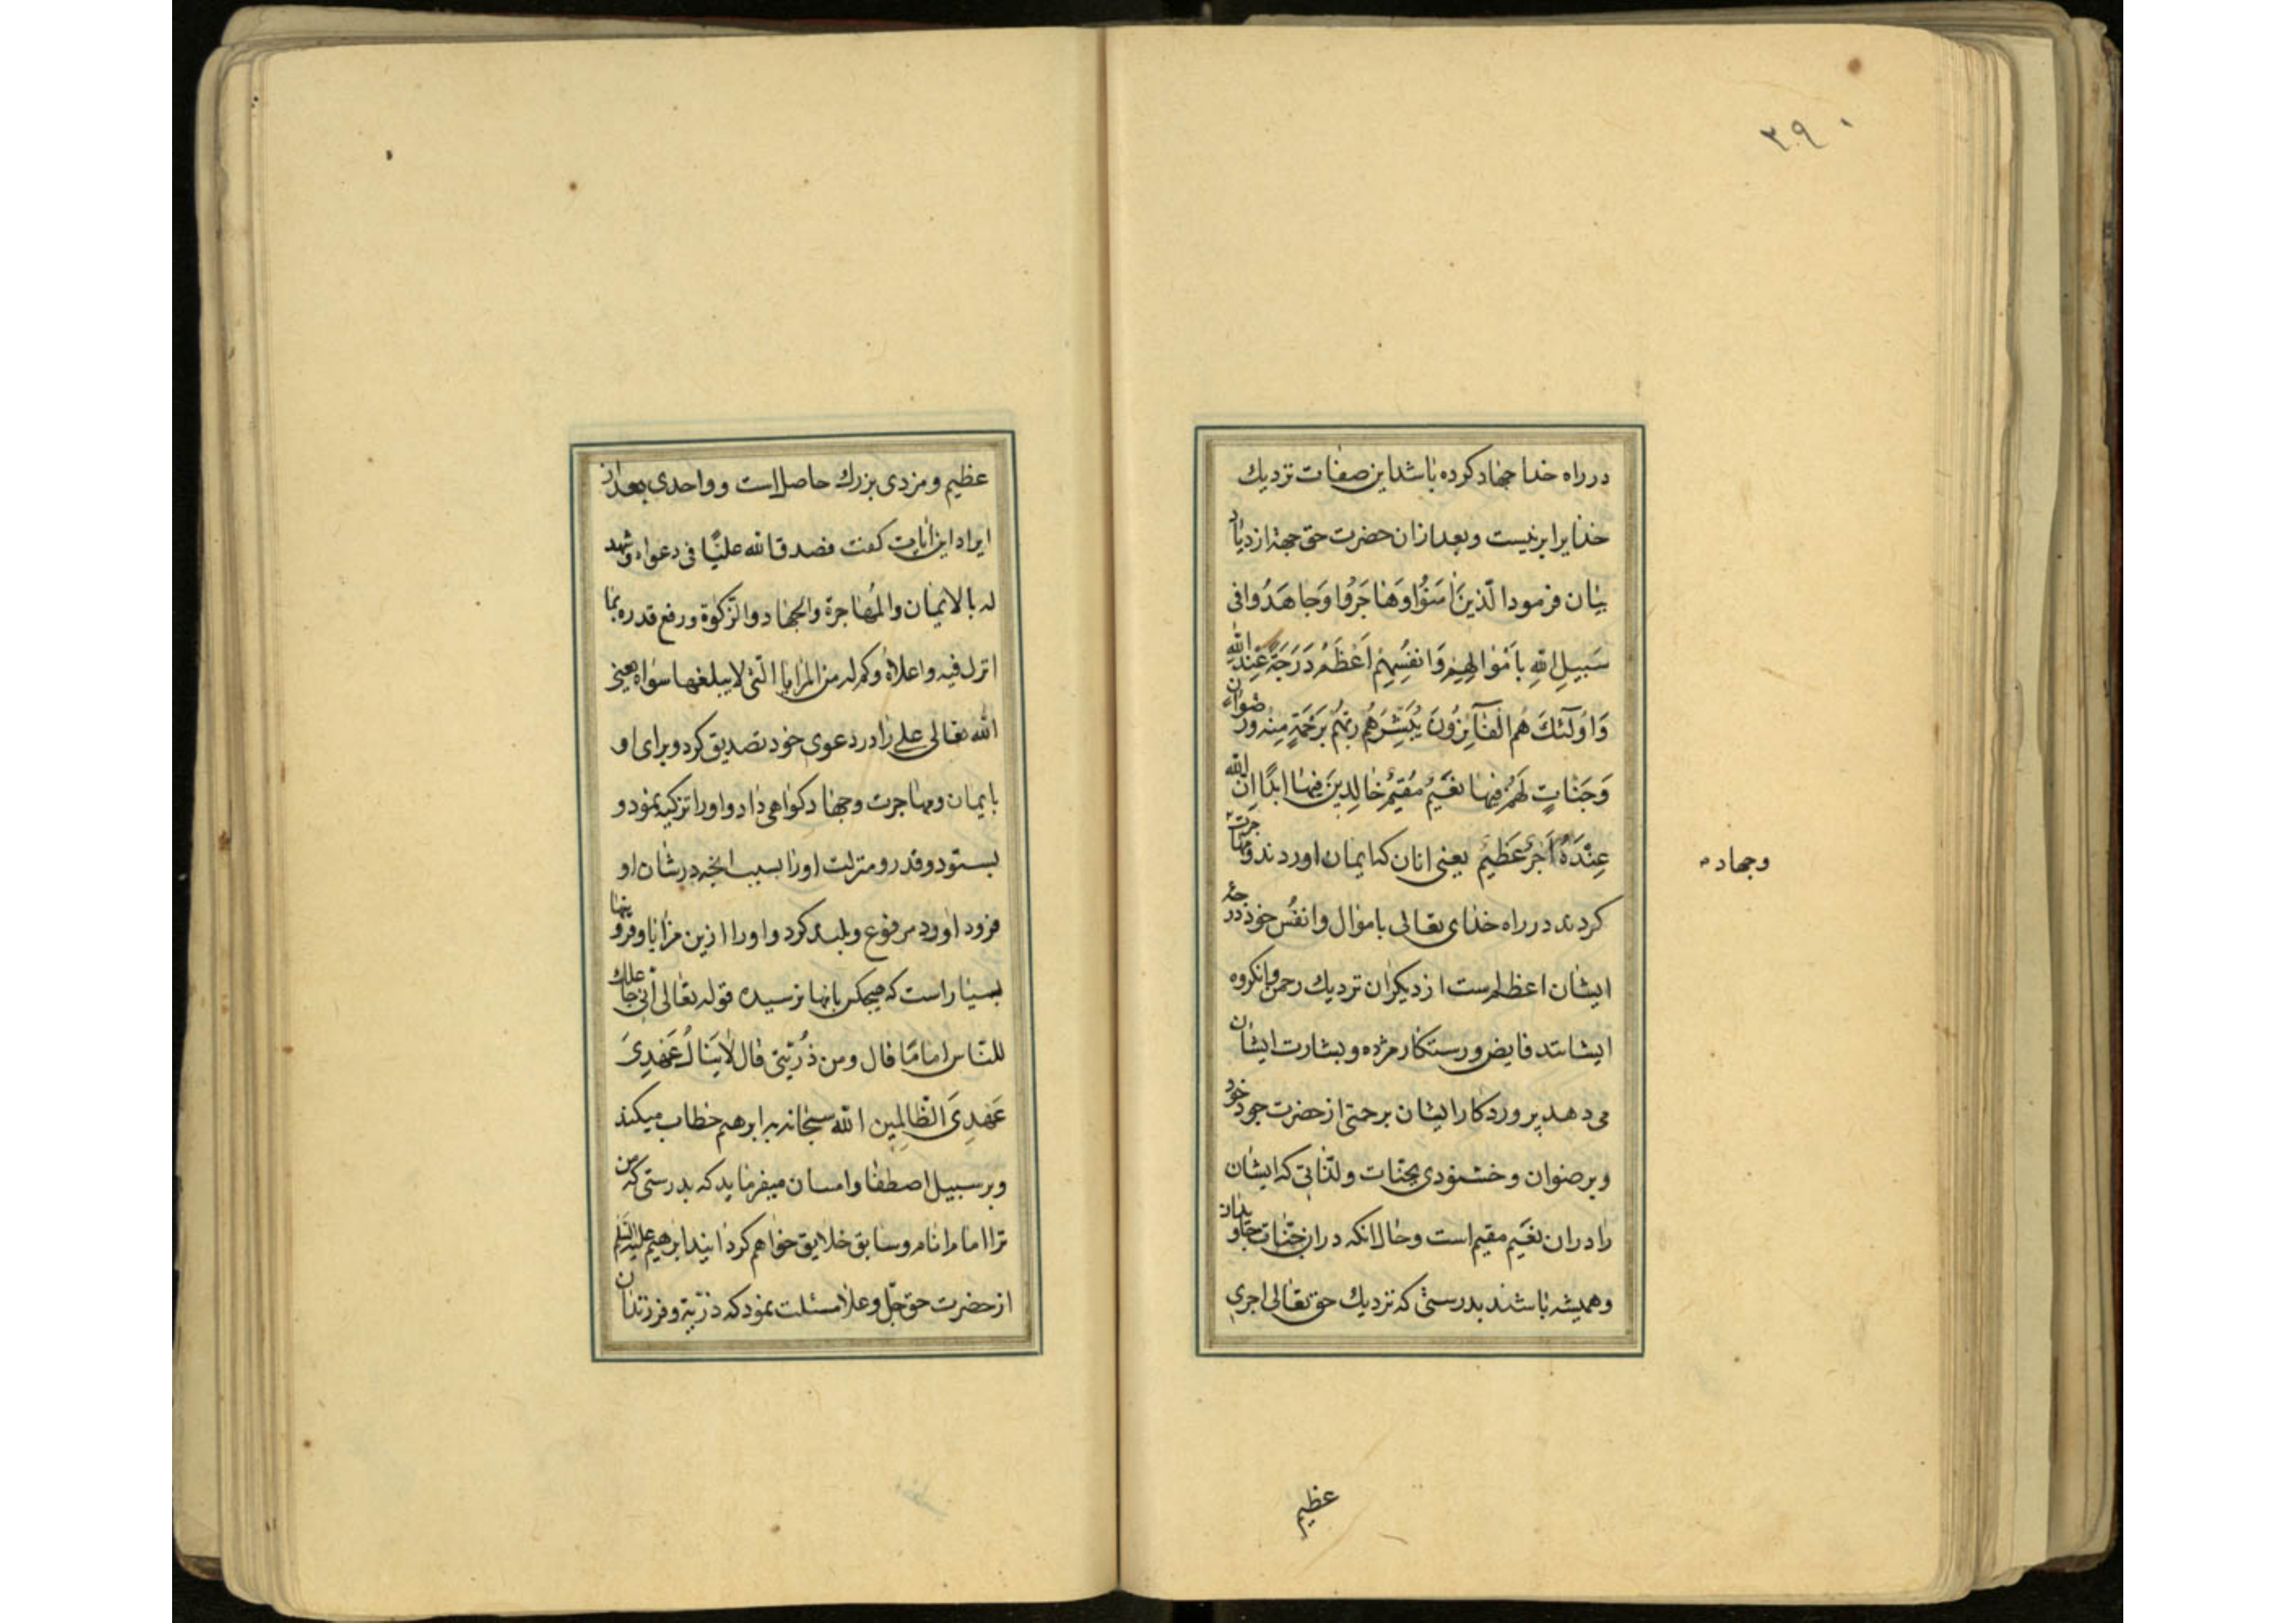 ٢٩٠
در راه خدا جهاد کرده باشد این صفات نزدیك
خدا برابر نیست و بعد از ان حضرت حق جهة ازدیاد
بیان فرمود الَّذینَ اٰمَنُوا وَهٰاجَرُوا وَجٰاهَدُوا فی
سَبیلِ اللهِ بِاَمْوٰالِهِمْ وَاَنفُسِهِمْ اَعْظَمُ دَرَجَةً عِنْدَ اللهِ
وَاُولٰٓئكَ هُم الْفٰآئِزُونَ یُبَشِّرُهُم رَبُّهُمْ بِرَحْمَةٍ مِنْه ورضوان
وَجَنّٰاتٍ لَهُمْ فیهٰا نَعیمٌ مُقیمٌ خٰالِدینَ فیهٰا ابدًا اِنّ الله
عِنْدَهُ اَجْرٌ عَظیمٌ یعنی انان که ایمان اوردند ومهاجرت
کردند در راه خدای تعالی باموال وانفس خود درجهٔ
ایشان اعظم است از دیکران نزدیك رحمن وانکروه
ایشانند فایض ورستکار مژده وبشارت ایشان
می دهد پروردکار ایشان برحمتی از حضرت جود خود
وبرضوان وخشنودی بجنّات ولذّاتی که ایشان
را دران نعیم مقیم است وحال انکه دران جنّات جاویدان
وهمیشه باشند بدرستی که نزدیك حق تعالی اجری
وجهاد
عظیم
عظیم ومزدی بزرك حاصل است وواحدی بعد از
ایراد این ایات کفت فصدق الله علیًّا فی دعواه وشهد
له بالایمان والمُهاجرة والجهاد والزّکوٰة ورفع قدره بما
انزل فیه واعلاه وکم له من المزایا الّتی لا یبلغها سواه یعنی
الله تعالی علی را در دعوی خود تصدیق کرد وبرای او
بایمان ومهاجرت وجهاد کواهی داد واورا تزکیه نمود و
بستود وقدر ومنزلت اورا بسبب انچه در شان او
فرود اورد مرفوع وبلند کرد واورا ازین مزایا وفزونیها
بسیار است که هیچکس بانها نرسیده قوله تعالی انّی جاعلك
للنّاس امامًا قال ومن ذُرّیّتی قال لٰا یَنٰالُ عَهْدِیَ
عَهْدِیَ الظّٰالِمین الله سبحانه به ابرهیم خطاب میکند
وبر سبیل اصطفا وامتنان میفرماید که بدرستی که من
ترا امام انام وسابق خلایق خواهم کردانید ابرهیم علیه السّلم
از حضرت حق جلّ وعلا مسئلت نمود که ذرّیّة وفرزندان